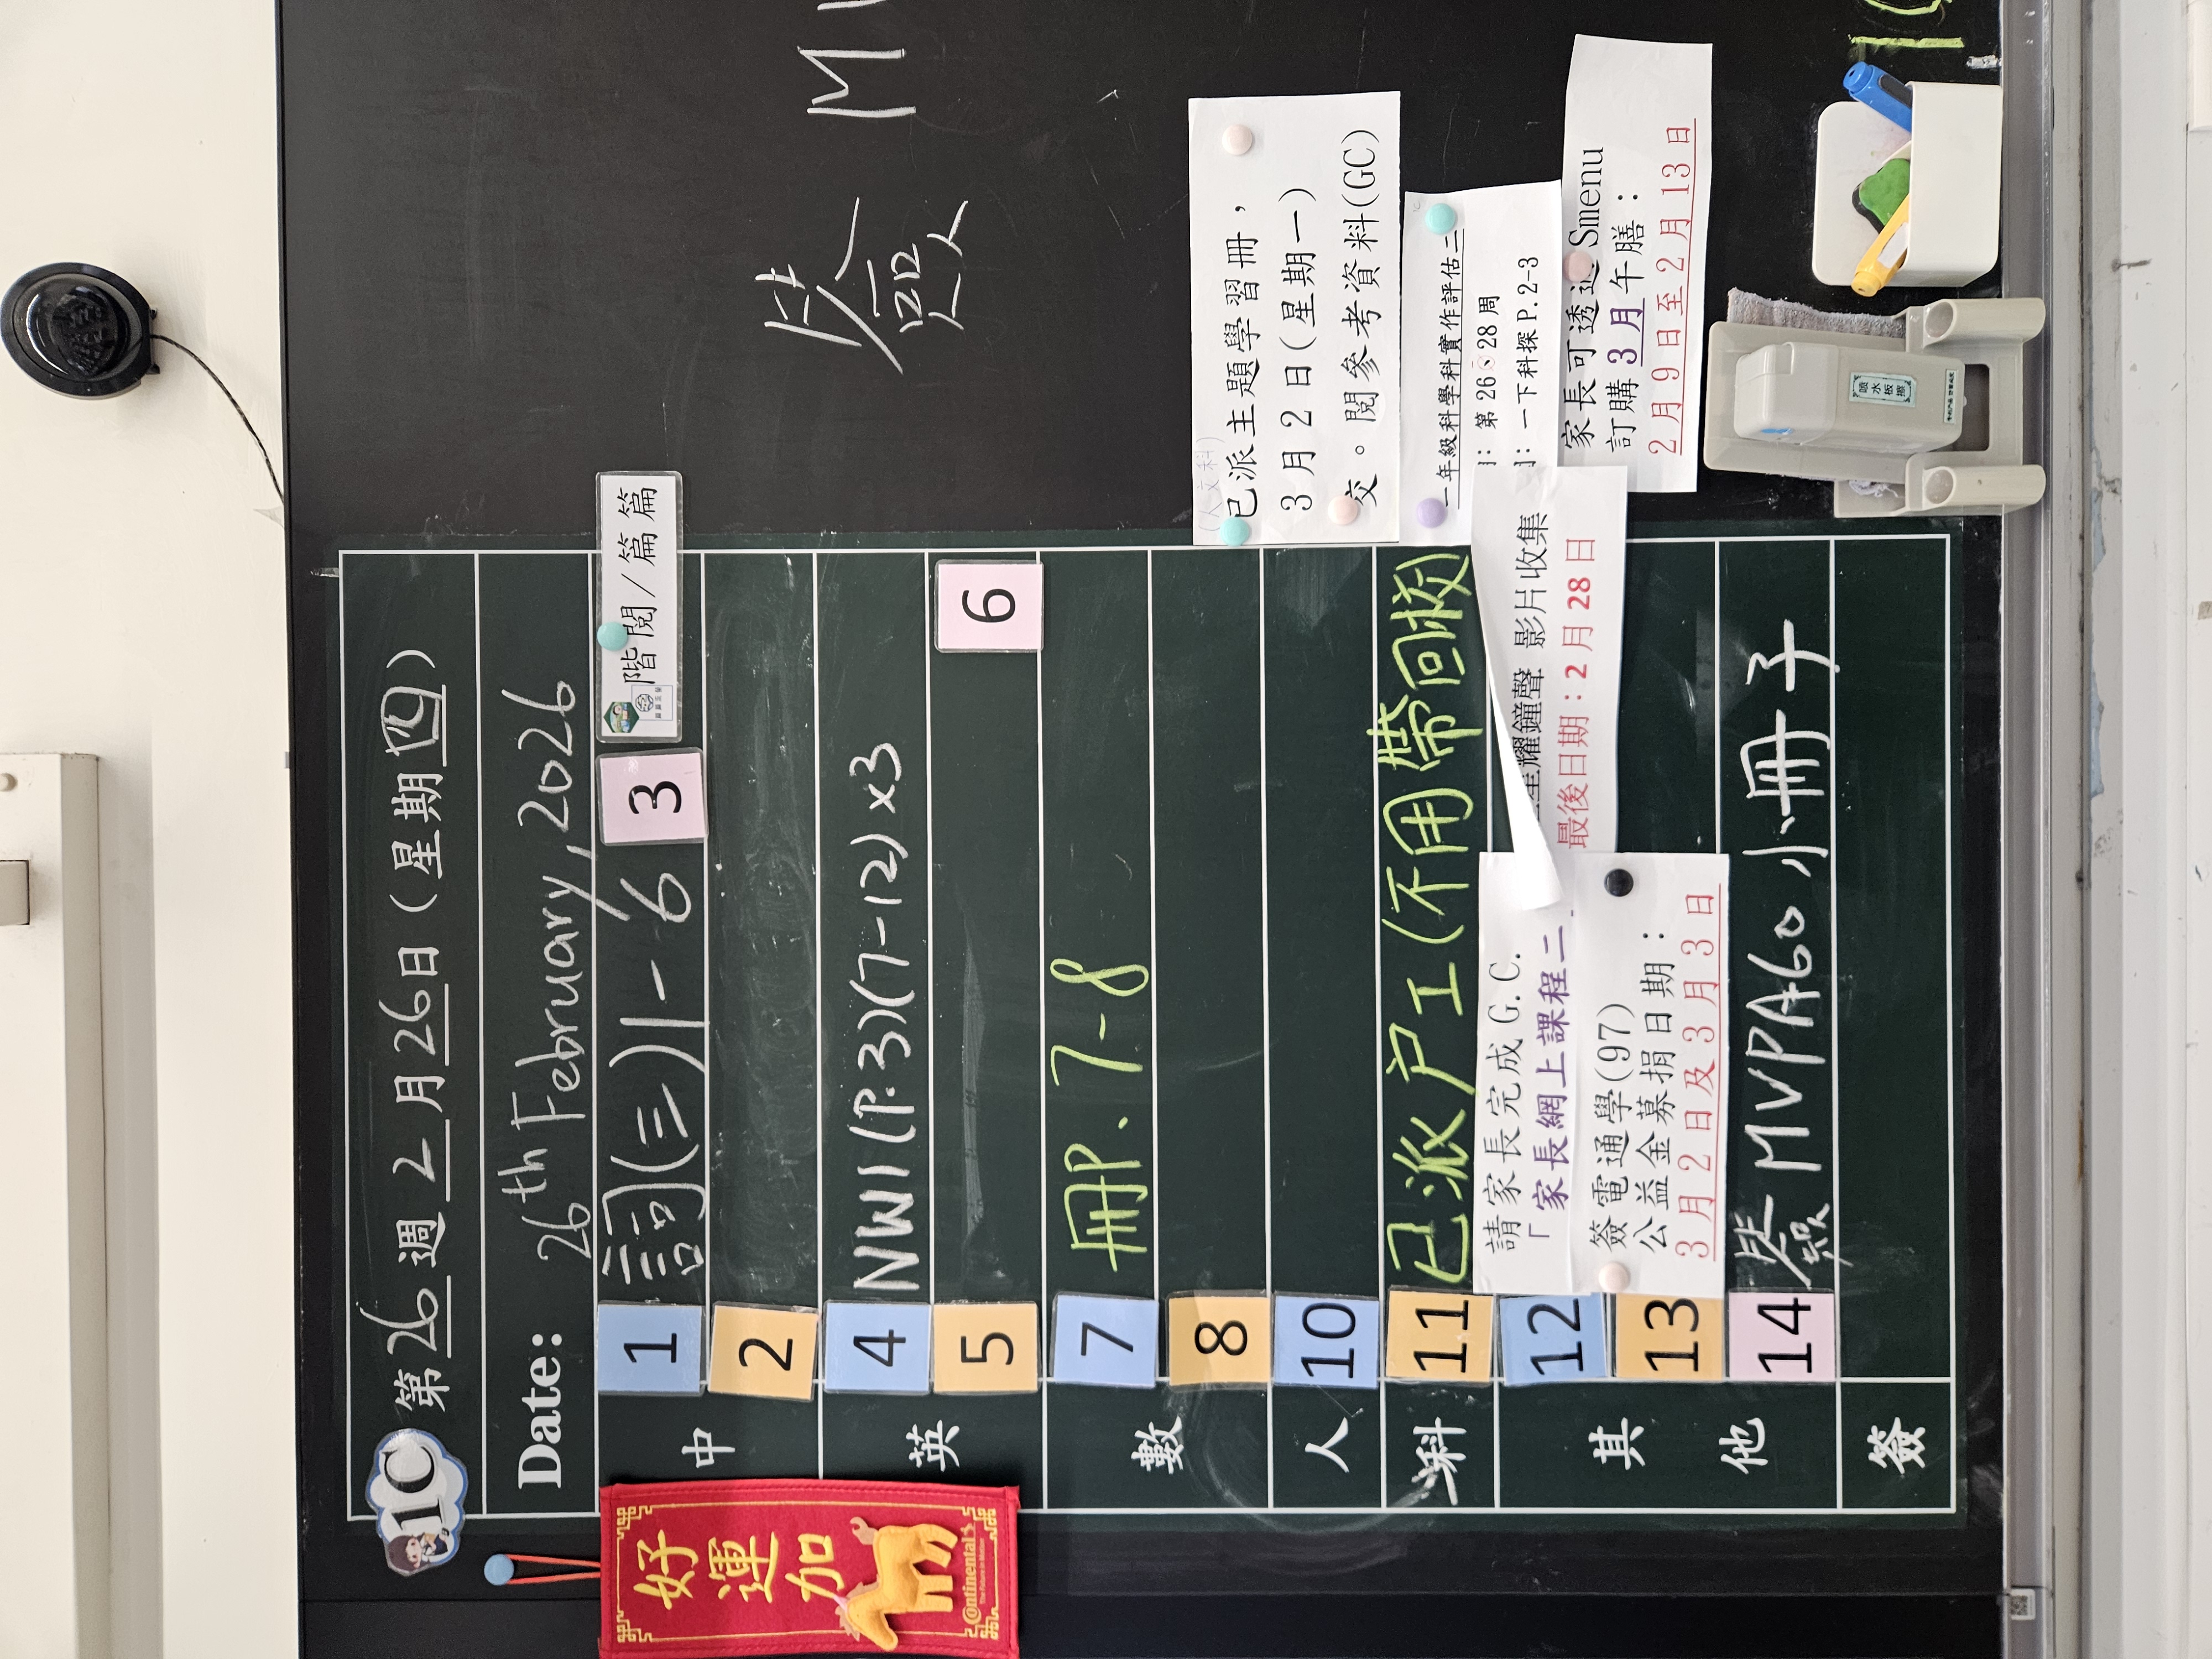 1C 第26週 2月26日(星期四)
Date: 26th February, 2026
中
1 詞(三)1-6
3 階閱/篇篇
2
英
4 NW1(P.3)(7-12)x3
5
6
數
7 冊P.7-8
8
人
10
科
11 已派戶工(不用帶回校)
其他
12 請家長完成G.C.
「家長網上課程二
星耀鐘聲 影片收集
最後日期：2月28日
13 簽電通學(97)
公益金募捐日期：
3月2日及3月3日
14 簽MVPA60小冊子
簽
好運加
Continental
The Future in Motion
簽 M
(人文科)
已派主題學習冊，
3月2日(星期一)
交。閱參考資料(GC)
一年級科學科實作評估二
：第26、28周
：一下科探P.2-3
家長可透過Smenu
訂購3月午膳：
2月9日至2月13日
噴水板擦